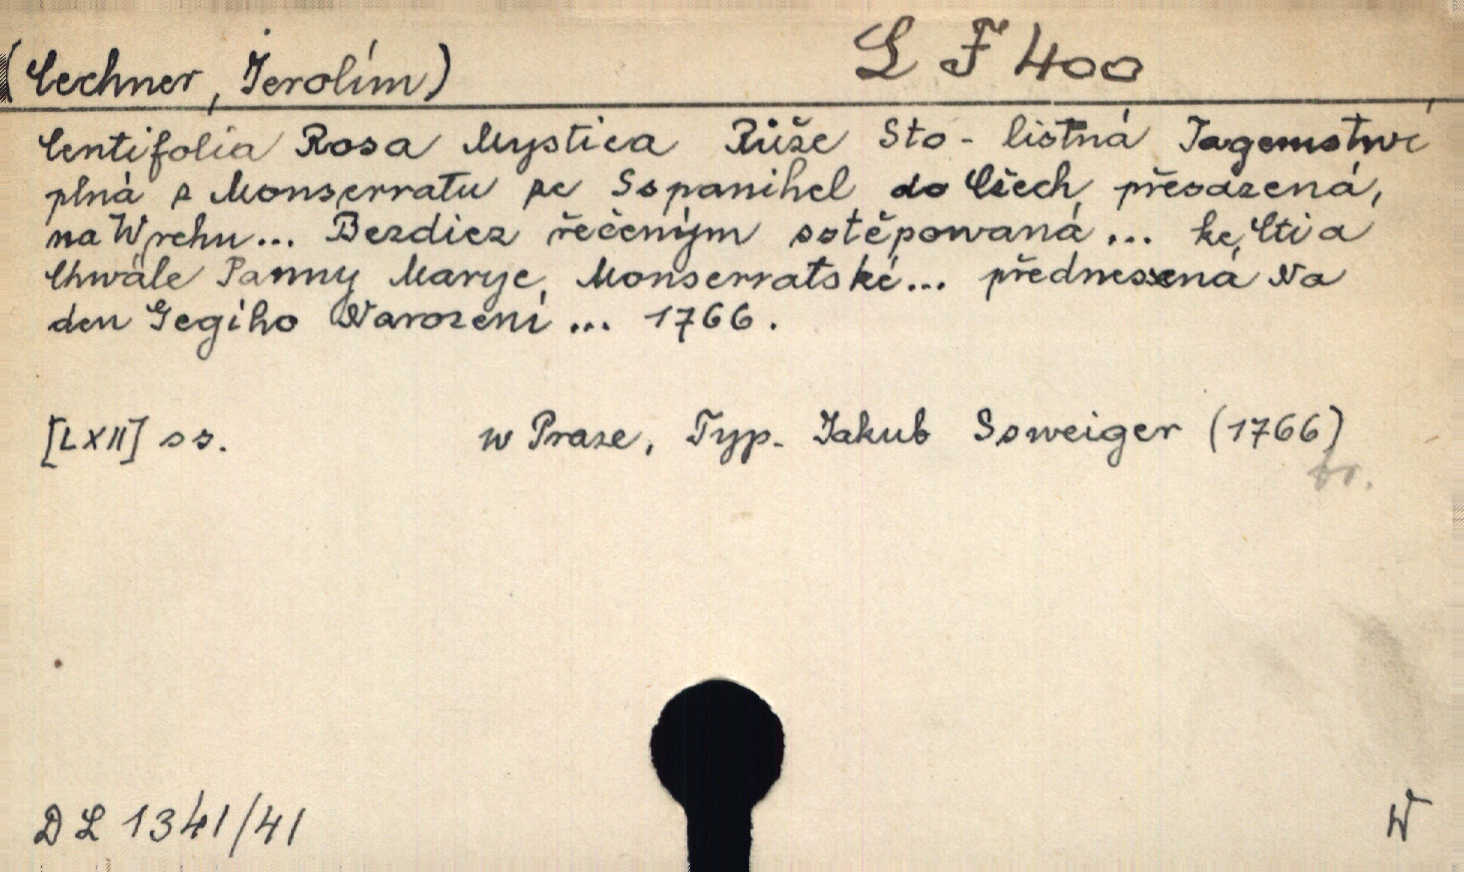 (Cechner, Jerolím) L F 400
Centifolia Rosa Mystica Růže Sto-listná Tagemstwí
plná z Monserratu ze Sspanihel do Cžech přesazená,
na Wrchu... Bezdiez řečeným sstěpowaná... ke Cti a
Chwále Panny Marye Monserratské... přednessená Na
den Gegiho Narození... 1766.
[LXII] ss. w Praze, Typ. Jakub Ssweiger (1766)
br.
D L 1341/41 W